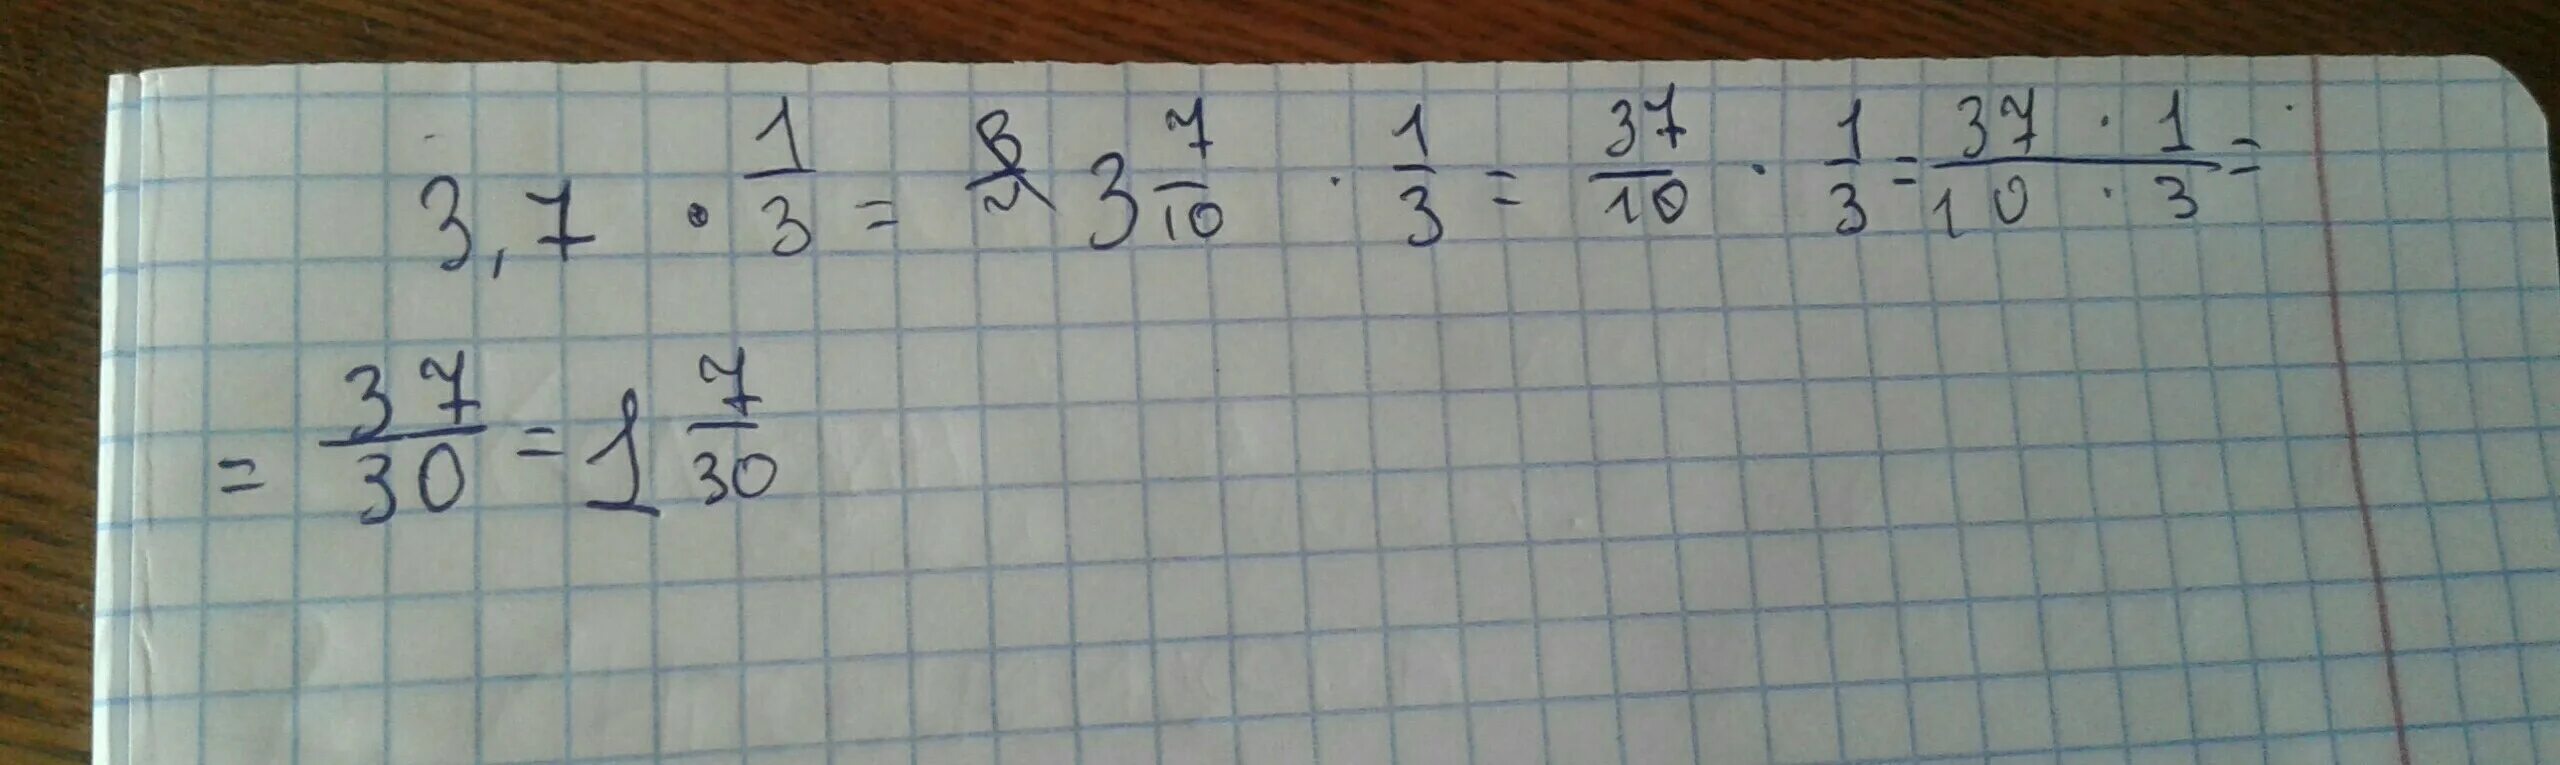 3,7 · 1/3 = 3 7/10 · 1/3 = 37/10 · 1/3 = 37 · 1/10 · 3 =
= 37/30 = 1 7/30